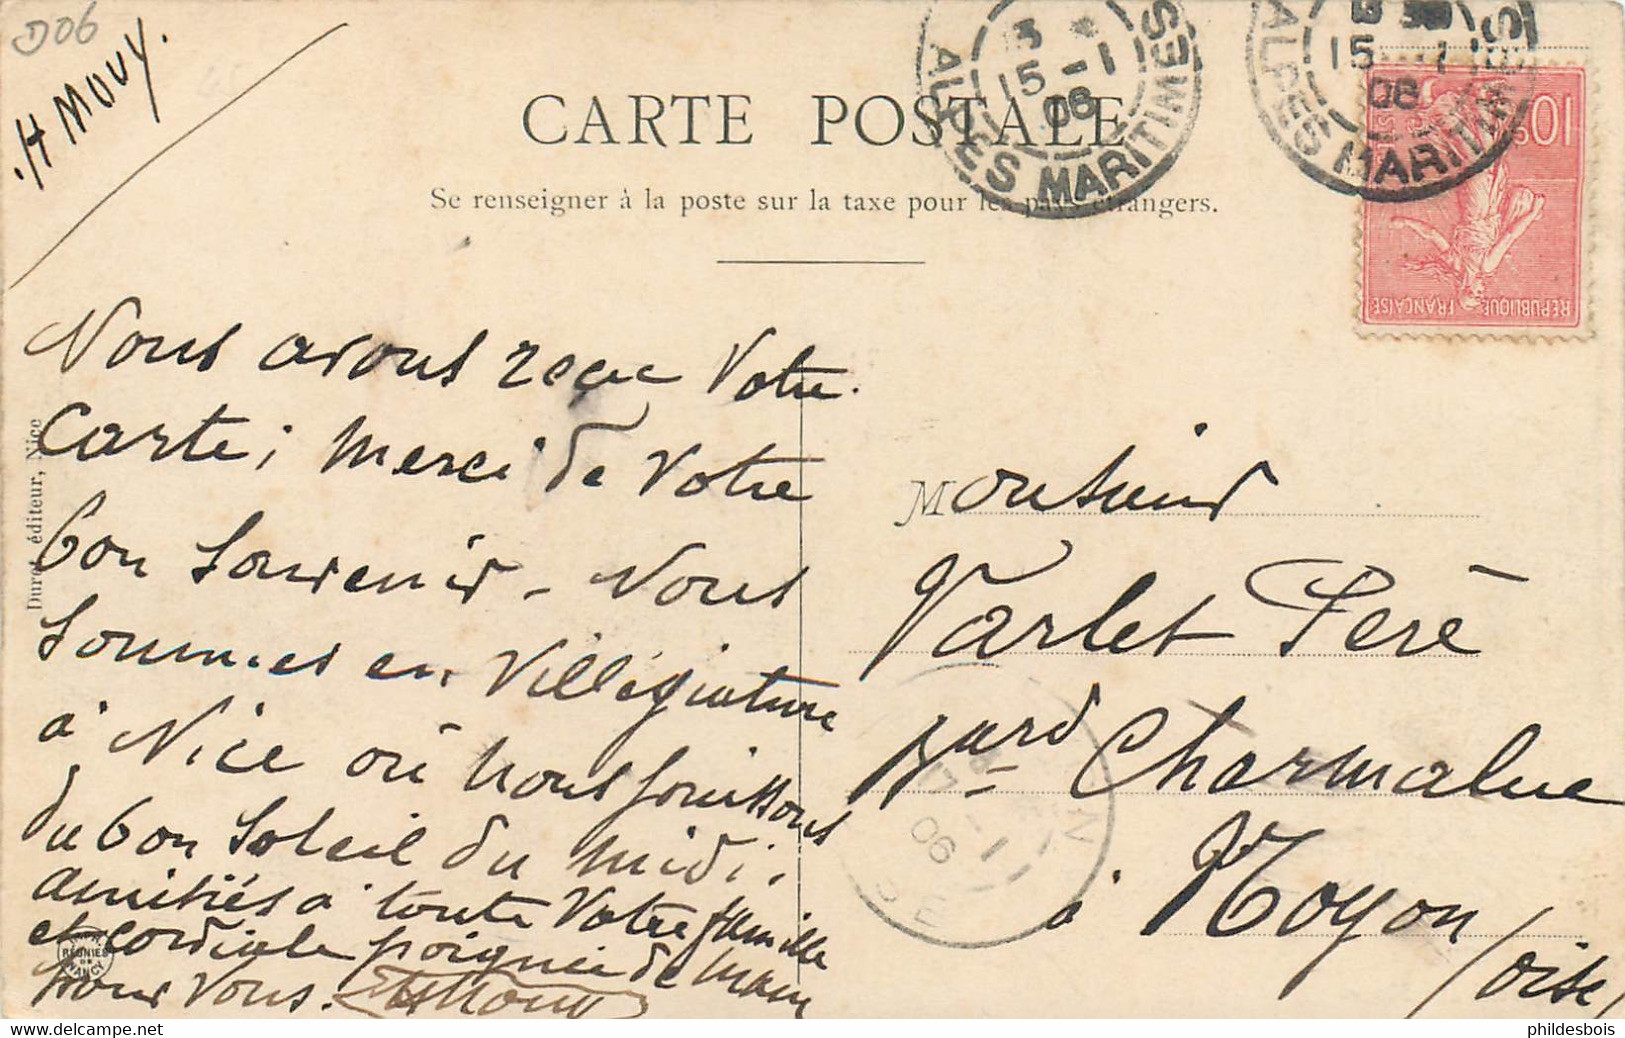 D06
H Mouy.
CARTE POSTALE
Se renseigner à la poste sur la taxe pour les pays étrangers.
15 -1
06
ALPES MARITIMES
15 -1
06
ALPES MARITIMES
10c
RÉPUBLIQUE FRANÇAISE
Duret éditeur, Nice
Nous avons reçue Votre
Carte; Merci de Votre
bon Souvenir - Nous
Sommes en Villégiature
à Nice où nous jouissons
du bon Soleil du midi.
amitiés à toute Votre famille
et cordiale poignée de main
pour Vous. HMouy
RÉUNIES
DE
NANCY
Monsieur
Varlet Père
Bard Charmolue
à Noyon
(Oise)
06
phildesbois